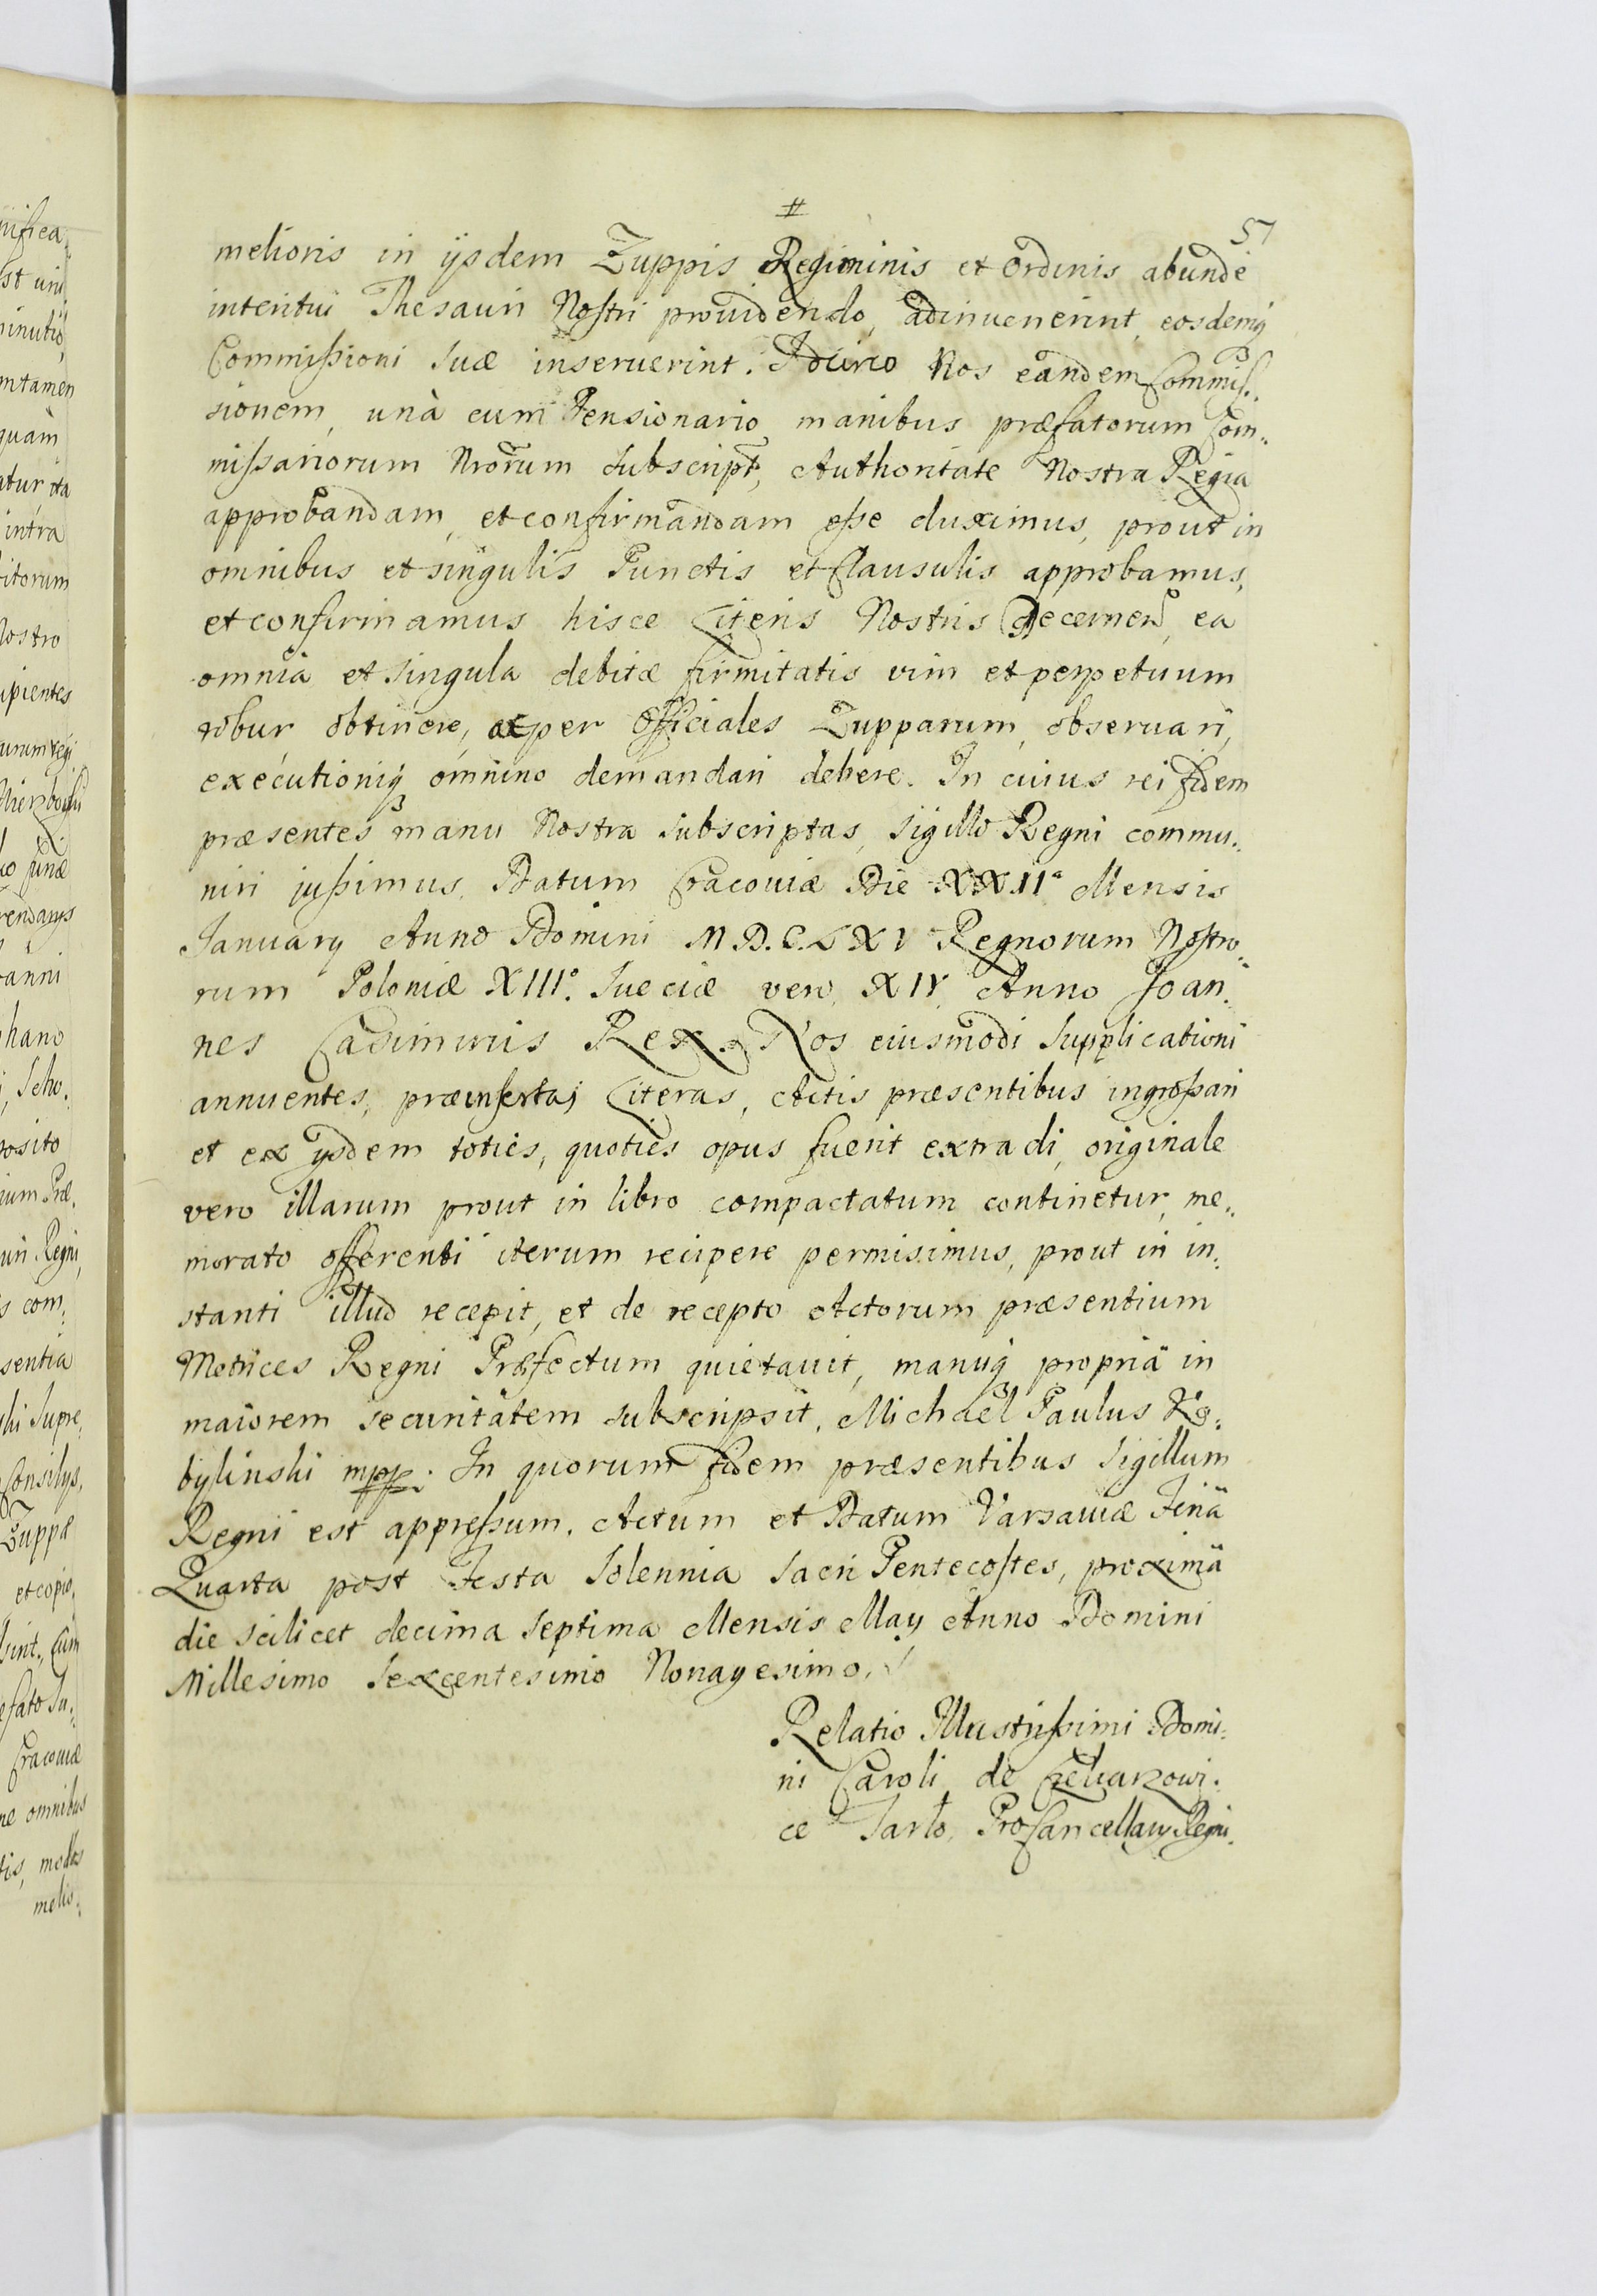 #
57
melioris in ijsdem Zuppis Regiminis et Ordinis abundè
intentui Thesauri Nostri prouidendo, adinuenerint, eosdemq́
Commissioni suæ inseruerint. Idcirco Nos eandem Commis„
sionem, unà cum Pensionario manibus præfatorum Com„
missariorum Nrõrum subscript, Authoritate Nostra Regia
approbandam, et confirmandam esse duximus, prout in
omnibus et singulis Punctis et Clausulis approbamus,
et confirmamus hisce Literis Nostris Decernen, ea
omnia et singula debitæ firmitatis vim et perpetuum
robur obtinere, ac per Officiales Zupparum, obseruari,
executioniq́ omnino demandari debere. In cuius rei fidem
præsentes manu Nostra subscriptas, sigillo Regni commu„
niri jussimus. Datum Cracouiæ Die XXII° Mensis
Januarij Anno Domini M.D.C.LXV Regnorum Nostro„
rum Poloniæ XIII°. Sueciæ vero XIV Anno Joan„
nes Casimirus Rex. Nos eiusmodi supplicationi
annuentes, præinsertas Literas, Actis præsentibus ingrossari
et ex ijsdem toties, quoties opus fuerit extradi, originale
vero illarum prout in libro compactatum continetur, me„
morato offerenti iterum recipere permisimus, prout in in„
stanti illud recepit, et de recepto Actorum præsentium
Metrices Regni Præfectum quietauit, manuq́ propriâ in
maiorem securitatem subscripsit. Michael Paulus Ko„
bylinski mpp. In quorum fidem præsentibus Sigillum
Regni est appressum. Actum et Datum Varsauiæ Feriâ
Quarta post Festa Solennia Sacri Pentecostes, proximâ
die scilicet decima septima Mensis Maij Anno Domini
Millesimo Sexcentesimo Nonagesimo.
Relatio Illustrissimi Domi„
ni Caroli de Czekarzowi„
ce Tarło, ProCancellarij Regni.